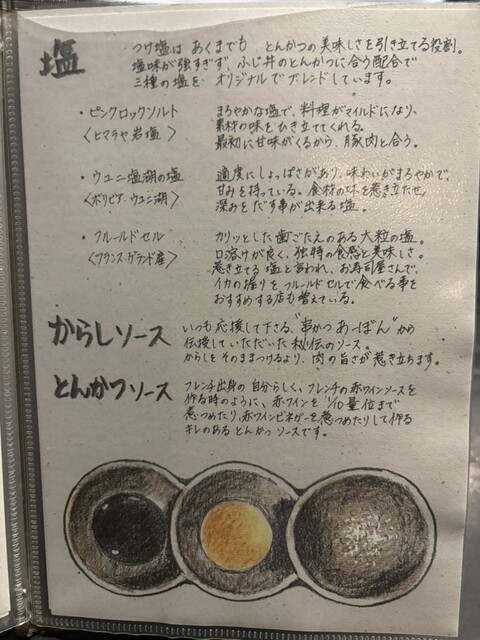 塩
つけ塩は あくまでも とんかつの美味しさを引き立てる役割。
塩味が強すぎず、ふじ井のとんかつに合う配合で
三種の塩を オリジナルでブレンドしています。
・ピンクロックソルト
〈ヒマラヤ岩塩〉
まろやかな塩で、料理がマイルドになり、
素材の味をひき立ててくれる。
最初に甘味がくるから、豚肉と合う。
・ウユニ塩湖の塩
〈ボリビア・ウユニ湖〉
適度にしょっぱさがあり、味わいがまろやかで、
甘みを持っている。食材の味を惹き立たせ、
深みをだす事が出来る塩。
・フルールドセル
〈フランス・ゲランド産〉
カリッとした歯ごたえのある大粒の塩。
口溶けが良く、独特の食感と美味しさ。
惹き立てる塩と言われ、お寿司屋さんで、
イカの握りをフルールドセルで食べる事を
おすすめする店も増えている。
からしソース
いつも応援して下さる"串かつあーぼん"から
伝授していただいた秘伝のソース。
からしをそのままつけるより、肉の旨さが惹き立ちます。
とんかつソース
フレンチ出身の自分らしく、フレンチの赤ワインソースを
作る時のように、赤ワインを1/10量位まで
煮つめたり、赤ワインビネガーを煮つめたりして作る
キレのあるとんかつソースです。